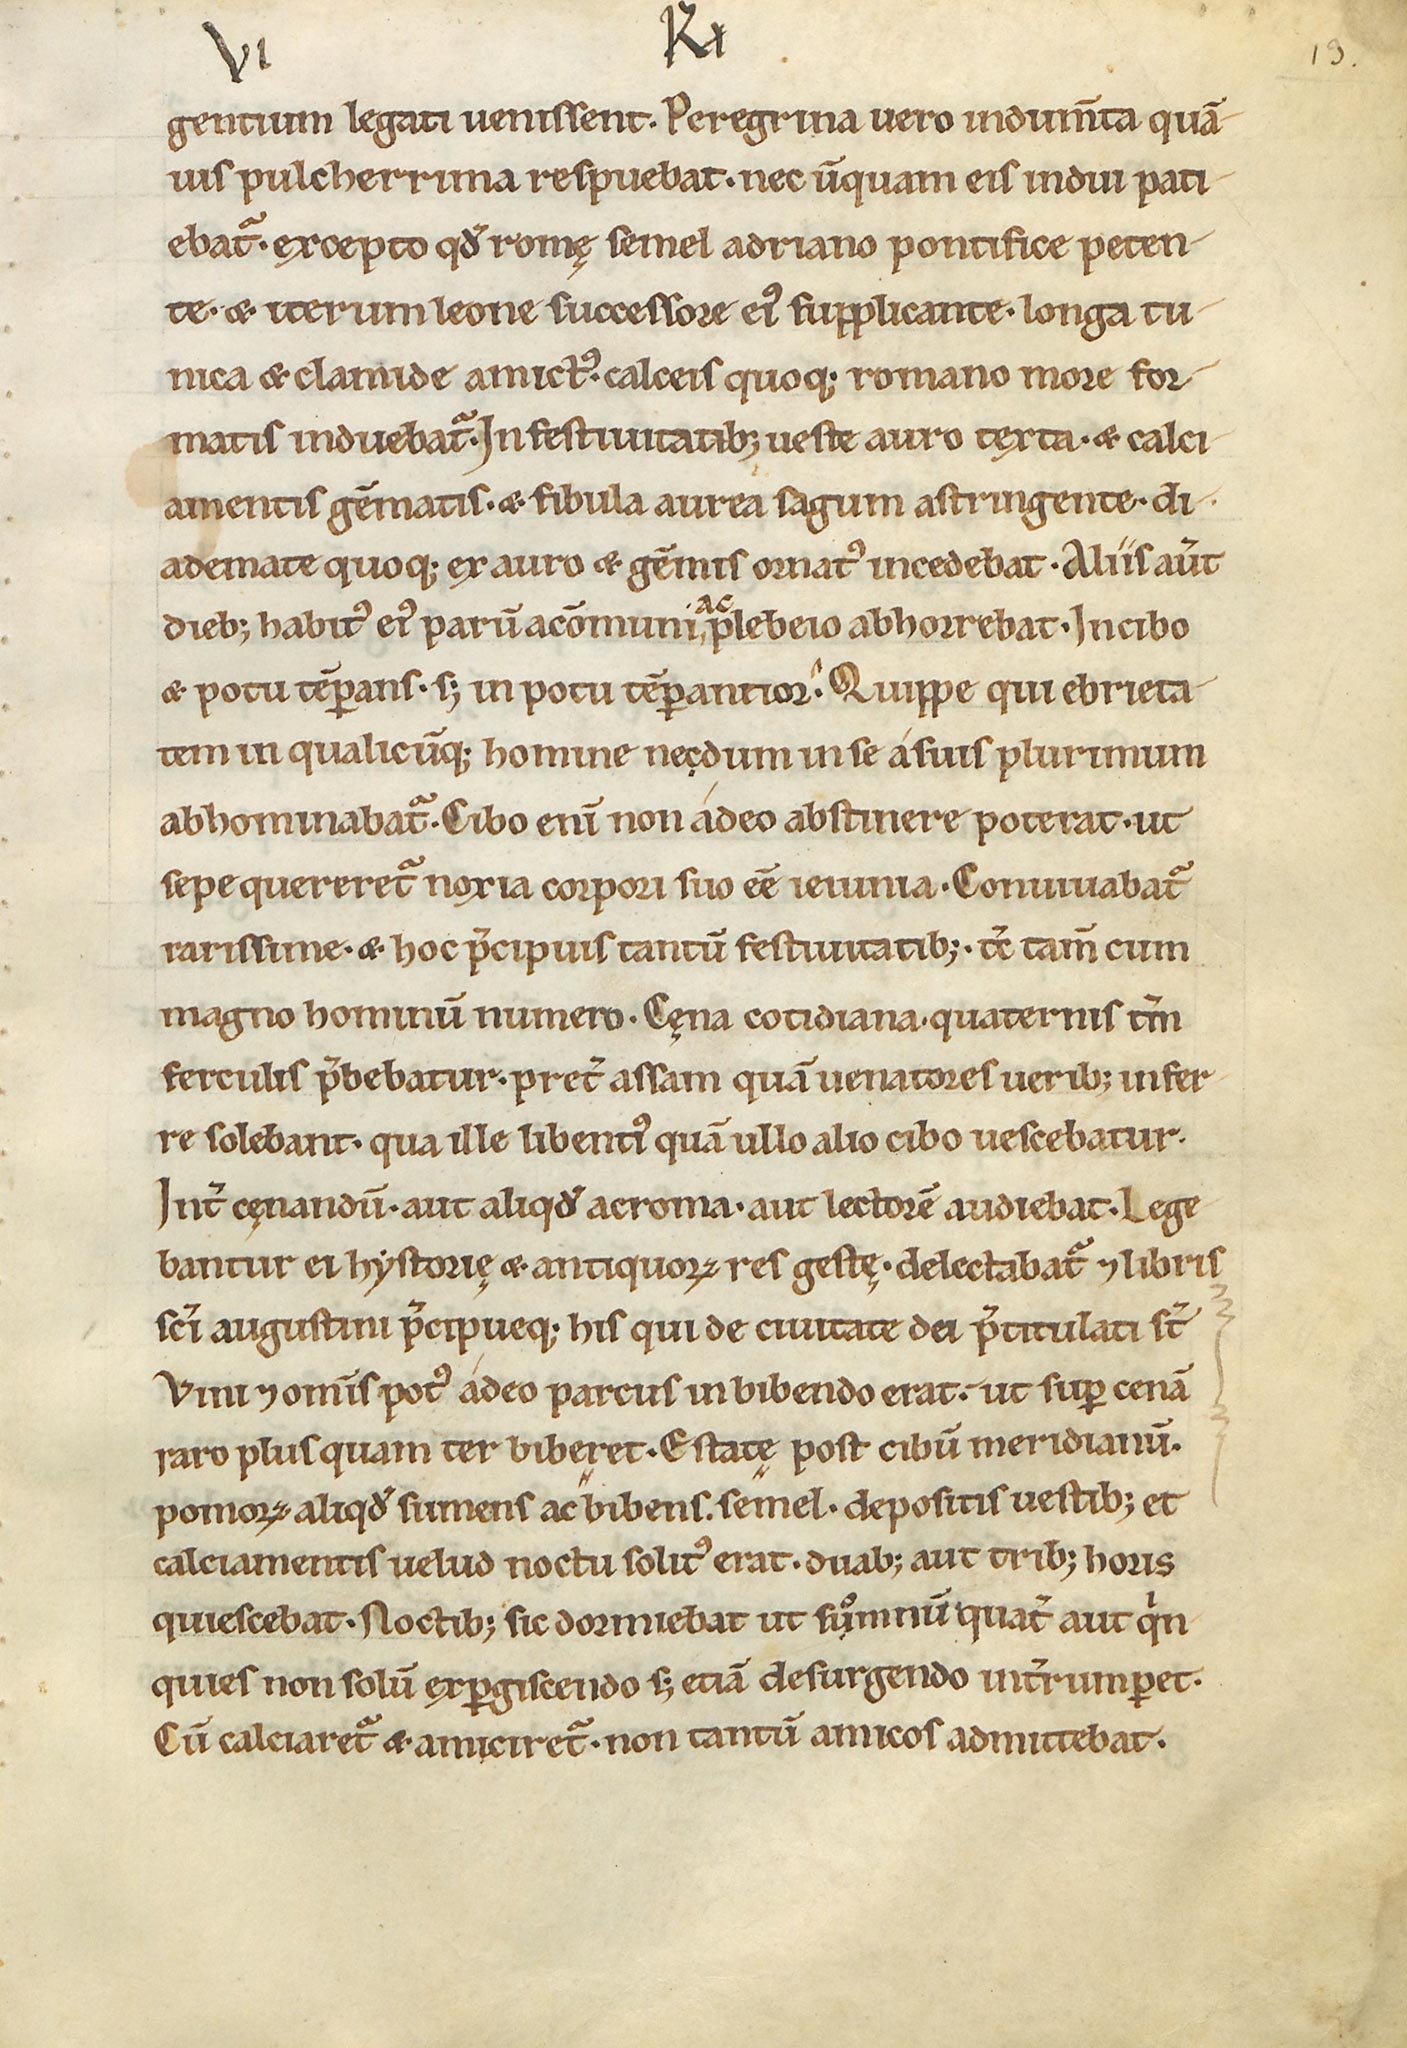 VI Kx 19.
gentium legati uenissent. Peregrina uero indum̄ta quā
uis pulcherrima respuebat. nec ūquam eis indui pati
ebat᷑. excepto qđ romę semel adriano pontifice peten
te. & iterum leone successore eiꝰ supplicante. longa tu
nica & clamide amictꝰ. calceis quoq; romano more for
matis induebat᷑. In festiuitatib; ueste auro tęxta. & calci
amentis gēmatis. & fibula aurea sagum astringente. di
ademate quoq; ex auro & gēmis ornatꝰ incedebat. Aliis aut̄
dieb; habitꝰ eiꝰ parū a cōmuni ac plebeio abhorrebat. In cibo
& potu tēꝑans. s; in potu tēꝑantior. Quippe qui ebrieta
tem in qualicūq; homine nęcdum in se á suis plurimum
abhominabat᷑. Cibo enī non ádeo abstinere poterat. ut
sepe quereret᷑ noxia corpori suo eē ieiunia. Conuiuabat᷑
rarissime. & hoc p̄cipuis tantū festiuitatib;. tc̄ tam̄ cum
magno hominū numero. Cęna cotidiana. quaternis tm̄
ferculis p̄bebatur. pret̄ assam quā uenatores uerib; infer
re solebant. qua ille libentiꝰ quā ullo alio cibo uescebatur.
Int̄ cęnandū. aut aliqđ acroma. aut lectorē audiebat. Lege
bantur ei hẏstorię & antiquoꝝ res gestę. delectabat᷑ ⁊ libris
sc̄i augustini p̄cipueq; his qui de ciuitate dei p̄titulati st̄
Vini ⁊ omīs potꝰ ádeo parcus in bibendo erat. ut suꝑ cenā
raro plus quam ter biberet. Estatę post cibū meridianū.
pomoꝝ aliqđ sumens ac bibens. semel. depositis uestib; et
calciamentis uelud noctu solitꝰ erat. duab; aut trib; horis
quiescebat. Noctib; sic dormiebat ut somnū quat̄ aut qͥn
quies non solū exꝑgiscendo s; etiā desurgendo int̄rumꝑet.
Cū calciaret᷑ & amiciret᷑. non tantū amicos admittebat.